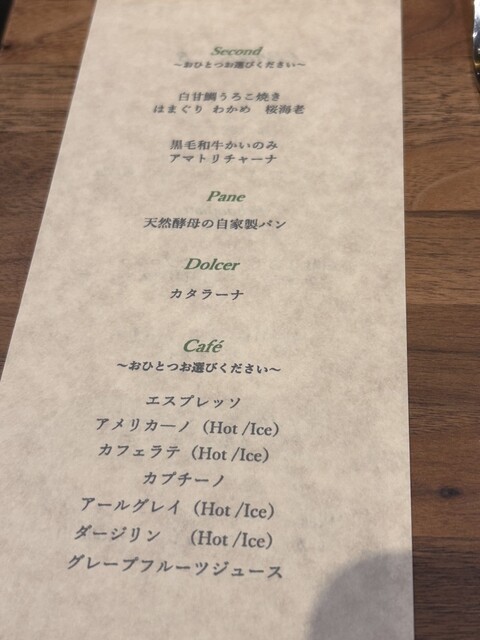 Second
～おひとつお選びください～
白甘鯛うろこ焼き
はまぐり わかめ 桜海老
黒毛和牛かいのみ
アマトリチャーナ
Pane
天然酵母の自家製パン
Dolcer
カタラーナ
Café
～おひとつお選びください～
エスプレッソ
アメリカーノ（Hot /Ice）
カフェラテ（Hot /Ice）
カプチーノ
アールグレイ（Hot /Ice）
ダージリン （Hot /Ice）
グレープフルーツジュース